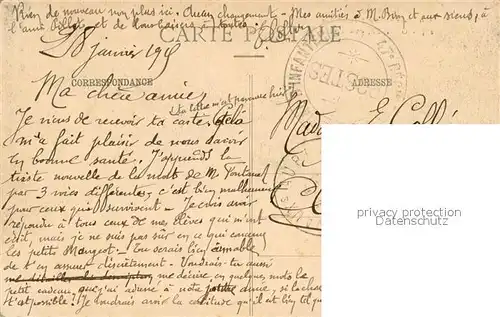 Rien de nouveau non plus ici. Aucun changement - Mes amitiés à M. Bin et aux siens, à
l'ami et de
CARTE POSTALE
28 Janvier 191
CORRESPONDANCE
ADRESSE
POSTES
Ma chère amie,
ta lettre m'est parvenue hier
Je viens de recevoir ta carte. Cela
Madame E.
m'a fait plaisir de vous savoir
en bonne santé. J'apprends la
triste nouvelle de la mort de M. Fontanel
par 3 voies différentes, c'est bien malheureux
pour ceux qui survivent - Je crois avoir
répondu à tous ceux de mes élèves qui m'ont
écrit, mais je ne suis pas sûr en ce qui concerne
les petits Margot - Tu serais bien aimable
de t'en assurer discrètement - Voudrais-tu aussi
me décrire en quelques mots le
petit cadeau que j'ai à notre petite amie, si la chose
t'est possible? Je voudrais avoir la certitude qu'il est bien tel que
privacy protection
Datenschutz